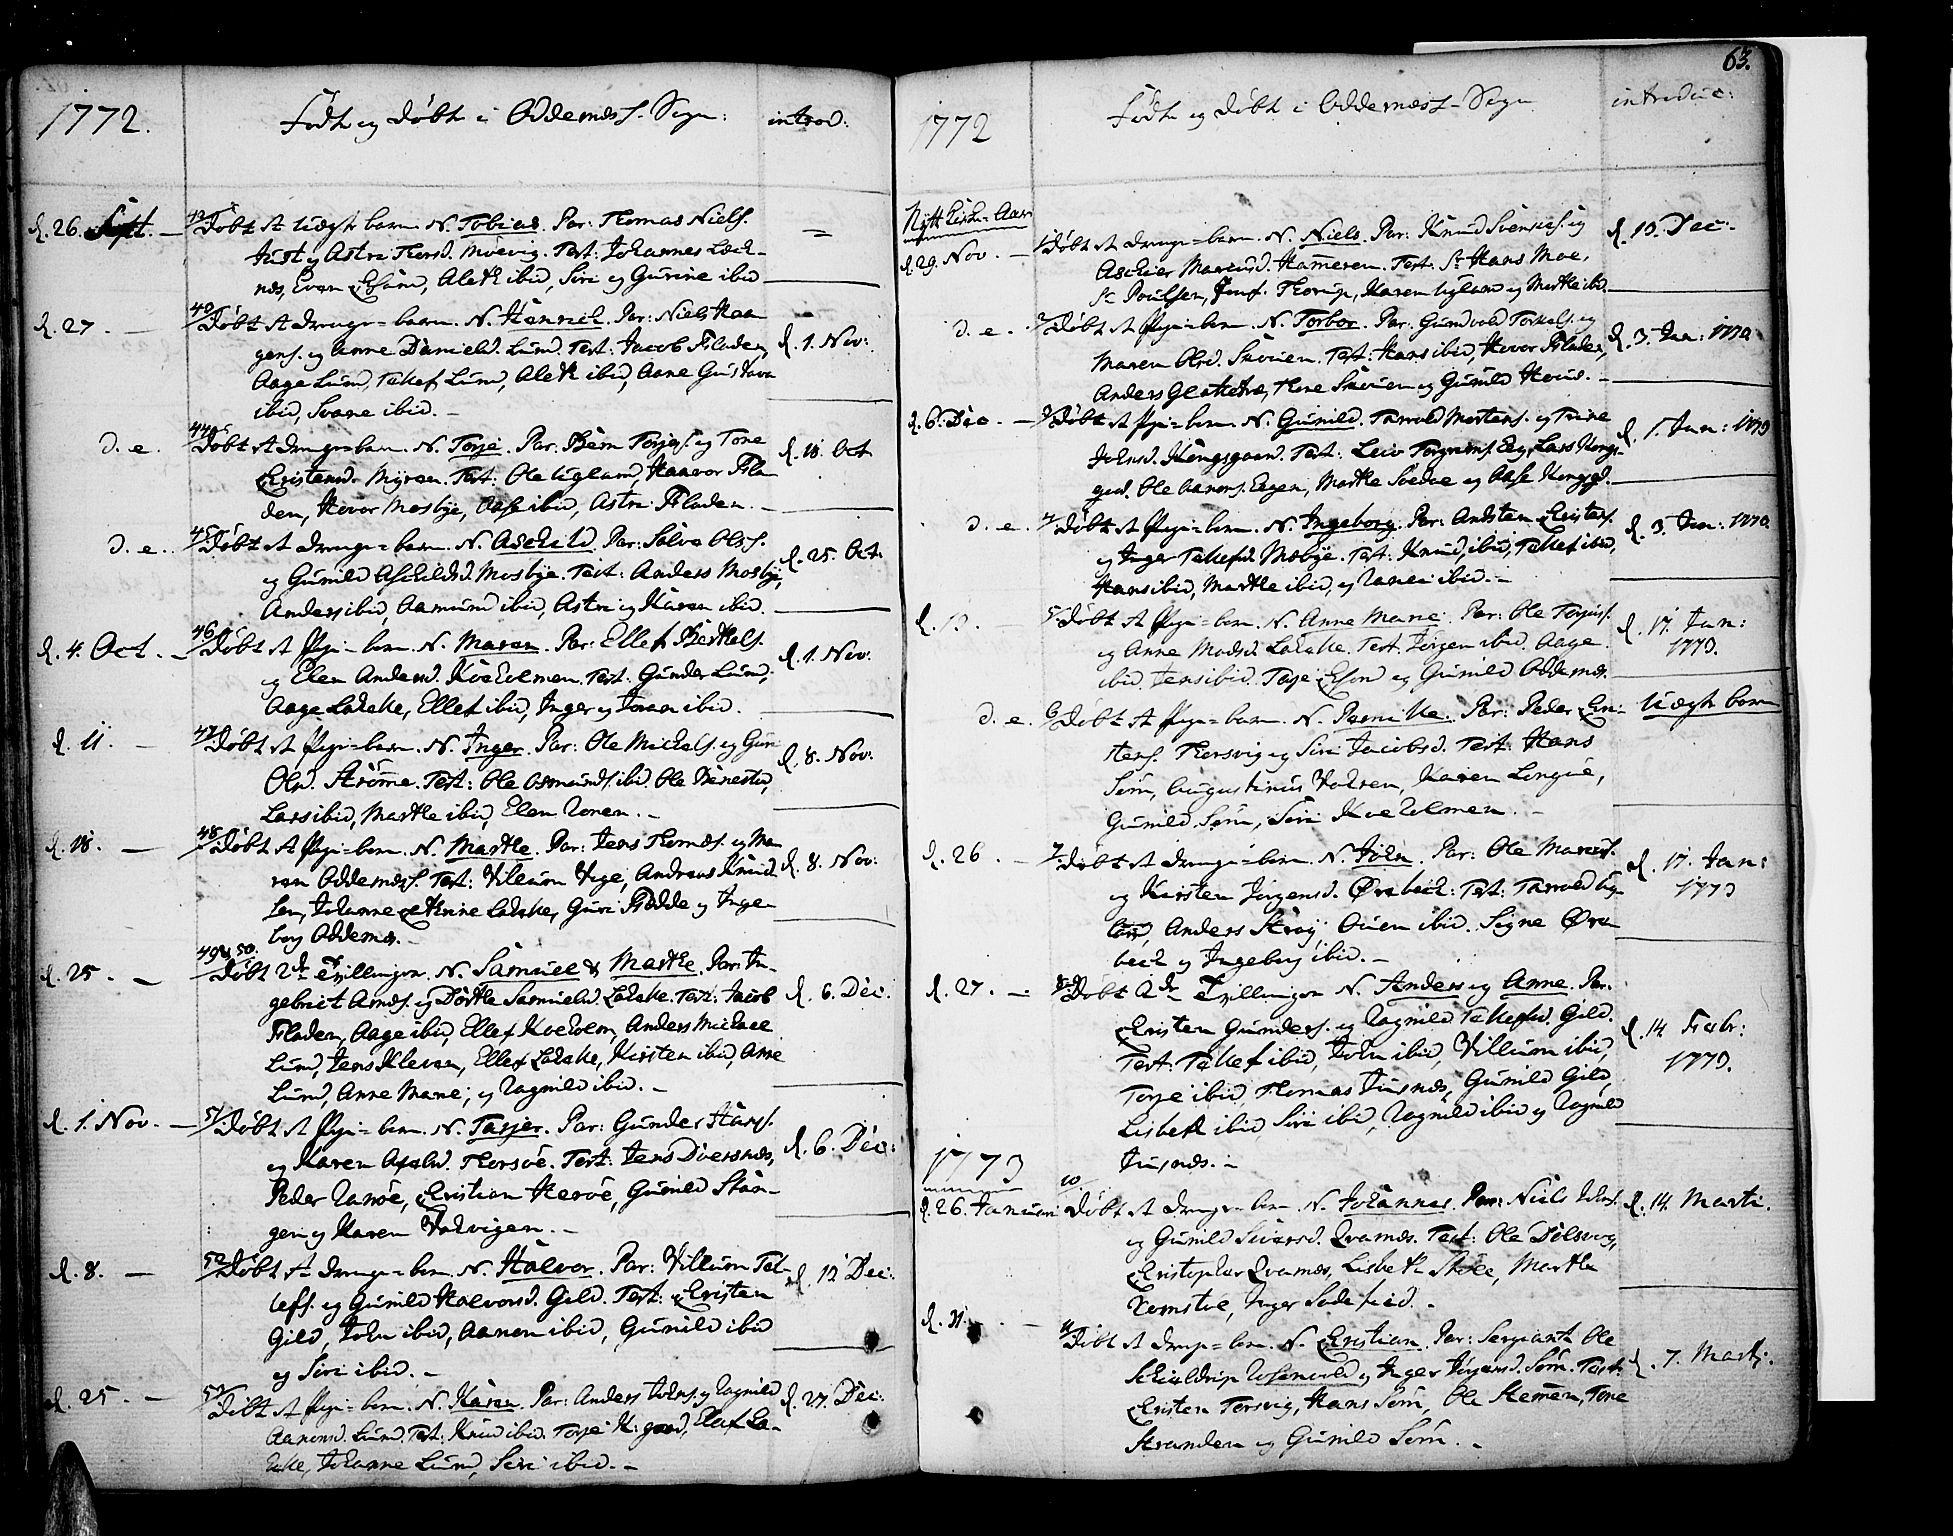 1772.
Födte og Döbte i Oddernes-Sogn:
introd:
d. 26. Sept. —
42 Döbt et Uægte barn. N. Tobias. Par: Thomas Niels.
Just og Astri Thorsd. Moevig. Test: Johannes
Even ibid, Aleth ibid, Siri og Gurine ibid
d. 27 —
43 Döbt et Drenge-barn. N. Henrich. Par: Niels Haa-
gens. og Anne Danields. Lund. Test: Jacob Fladen,
Aage Lund, Tellef Lund, Aleth ibid, Anne Gustava
ibid, Svane ibid. —
d. 1. Nov:
d. e. .
44 Döbt et Drenge-barn. N. Torje. Par: Torjes. og Tone
Christensd. Myren. Test: Ole Ugland, Haavor Fla-
den, Hover Mosbye, Aase ibid, Astri Fladen. —
d. 18. Oct
d. e. .
45 Döbt et Drenge-barn. N. Aschild. Par: Salve Ols.
og Gunild Aschildsd. Mosbye. Test: Anders Mosbye,
Anders ibid, Aamund ibid, Astri og Karen ibid.
d. 25. Oct.
d. 4. Oct. —
46 Döbt et Pige-barn. N. Maren. Par: Ellef Berthels.
og Elen Andersd. Koeholmen. Test. Gunder Lund,
Aage Ladehe, Ellef ibid, Inger og Joran ibid.
d. 1. Nov.
d. 11. —
47 Döbt et Pige-barn. N. Inger. Par: Ole Michels. og Guri
Olsd. Strömme. Test: Ole Osmunds. ibid Ole Benestad,
Lars ibid, Marthe ibid, Elen Ronen. —
d. 8. Nov.
d. 18. —
48 Döbt et Pige-barn. N. Marthe. Par: Jens Thomes. og Ma-
ren Oddernes. Test: Villum Vige, Andreas Knud-
sen, Johanne Cathrine Ladehe, Guri Rödde og Inge-
borg Oddernes. —
d. 8. Nov:
d. 25. —
49 & 50. Döbt 2de Tvillinger. N. Samuel & Marthe. Par: In-
gebrict Arnes. og Dorthe Samuelsd. Ladehe. Test: Jacob
Fladen, Aage ibid, Ellef Koeholm, Anders Michael
Lund, Jens Kleven, Ellef Ladehe, Kirsten ibid, Anne
Lund, Anne Marie; og Ragnild ibid. —
d. 6. Dec.
d. 1. Nov. —
51 Döbt et Pige-barn. N. Tarjer. Par: Gunder Hans.
og Karen Axelsd. Thorsöe. Test: Jens Dversnes,
Peder Randöe, Christian Heröe, Gunild Stan-
gen og Karen Valvigen. —
d. 6. Dec:
d. 8. —
52 Döbt et Drenge-barn. N. Halvor. Par: Villum Tel-
lefs. og Gunild Halvorsd. Gild. Test: Christen
Gild, John ibid, Aanen ibid, Gunild ibid
og Siri ibid. —
d. 12 Dec:
d. 25 —
53 Döbt et Pige-barn. N. Karen. Par: Anders Johns. og Ragnild
Aanensd. Lund. Test: Knud ibid. Torje K: gaard, Ellef La-
dehe, Johanne Lund, Siri ibid. —
d. 27. Dec:
63.
1772
Födte og Döbte i Oddernes-Sogn
introduc:
Nytt Kirke-Aar
d. 29. Nov. —
1 Döbt et Drenge-barn. N. Niels. Par: Knud Svenkes. og
Marcusd. Hameren. Test. Sr Hans Moe,
Sr Poulsen, Jomf. Thorup, Karen Ugland og Marthe ibid.
d. 10. Dec:
d. e. .
2 Döbt et Pige-barn. N. Torbor. Par: Gundvold Torkels. og
Maren Olsd. Skuien. Test: Hans ibid, Hover Fladen,
Anders, Thore Skuien og Gunild. —
d. 3. Jan: 1773.
d. 6. Dec. —
3 Döbt et Pige-barn. N. Gunild. Tarvald Mortens. og Trine
Johnsd. Kongsgaard. Test: Leiv Torgrims. Eeg, Lars Kongs-
gaard. Ole Aanens. Eegen, Marthe og Aase Kongsgd.
d. 1. Jan: 1773
d. e. .
4 Döbt et Pige-barn. N. Ingeborg. Par: Andsten Christens.
og Inger Tellefsd. Mosbye. Test: Knud ibid, Tellef ibid,
Hans ibid, Marthe ibid, og ibid. —
d. 3. Jan: 1773.
d. 13. —
5 Döbt et Pige-barn. N. Anne Marie. Par: Ole Torjus.
og Anne Madsd. Ladehe. Test. Jörgen ibid. Aage
ibid. Jens ibid. Tarje og Gunild Oddernes.
d. 17. Jan:
1773.
d. e.
6 Döbt et Pige-barn. N. Pernille. Par: Peder Chri-
stens. Thorsvig og Siri Jacobsd. Test: Hans
Söm, Augustinus, Karen,
Gunild Söm, Siri Koeholmen. —
Uægte barn
d. 26. —
7. Döbt et Drenge-barn. N. John. Par: Ole
og Kirsten Jörgensd. Örebech: Test: Tarvald Ug-
land, Anders Straj, ibid. Signe Öre-
bech og Ingeborg ibid. —
d. 17. Jan:
1773
d. 27. —
8 Döbt 2de Tvillinger N. Anders og Anne. Par.
Christen Gunders. og Ragnild Tellefsd. Gild.
Test: Tellef ibid, John ibid, Villum ibid,
Torje ibid, Thomas Justnes, Gunild Gild,
Lisbeth ibid, Siri ibid, Ragnild ibid og Ragnild
Justnes. —
d. 14. Febr:
1773.
1773
d. 26. Januari
10 Döbt et Drenge-barn. N. Johannes. Par: Niels
og Gunild Siversd. Qvarnes. Test: Ole Dölsvog,
Christopher Qvarnes, Lisbeth, Marthe
Romstöl, Inger. —
d. 14. Marti.
d. 31. —
11 Döbt et Drenge-barn. N. Christian. Par: Sergiant Ole
Schieldrup Rosenvold og Inger Jörgensd. Söm. Test:
Christen Torsvig, Hans Söm, Ole Hemmen, Tone
Stranden og Gunild Söm. —
d. 7. Martj.